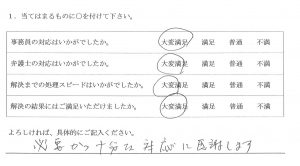 1．当てはまるものに○を付けて下さい。
事務員の対応はいかがでしたか。 大変満足 満足 普通 不満
弁護士の対応はいかがでしたか。 大変満足 満足 普通 不満
解決までの処理スピードはいかがでしたか。 大変満足 満足 普通 不満
解決の結果にはご満足いただけましたか。 大変満足 満足 普通 不満
よろしければ、具体的にご記入ください。
必要かつ十分な対応に感謝します